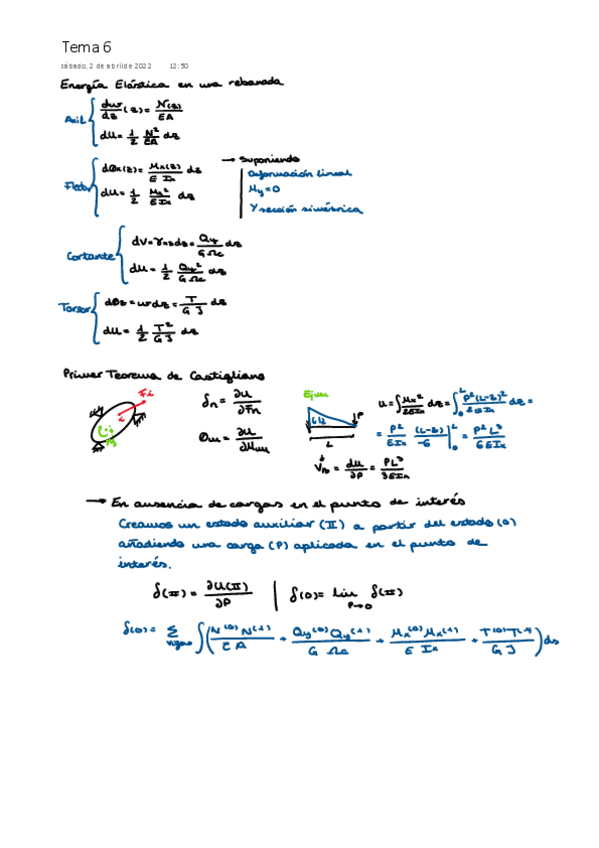 Tema 6
sábado, 2 de abril de 2022 12:50
Energía Elástica en una rebanada
Axil { dw/dz (z) = N(z)/EA
dU = 1/2 N²/EA dz
Flector { dθx(z) = Mx(z)/E Ix dz
dU = 1/2 Mx²/E Ix dz
→ Suponiendo
Deformación lineal
My = 0
Y sección simétrica
Cortante { dv = γyz dz = Qy/GΩc dz
dU = 1/2 Qy²/GΩc dz
Torsor { dθz = ω dz = T/GJ dz
dU = 1/2 T²/GJ dz
Primer Teorema de Castigliano
Fi
i
M
δn = ∂U/∂Fn
θm = ∂U/∂Mm
Ejm
P
L
U = ∫ Mx²/2EIx dz = ∫₀ᴸ P²(L-z)²/2EIx dz =
= P²/EIx (L-z)/-6 |₀ᴸ = P²L³/6EIx
= dU/dP = PL³/3EIx
→ En ausencia de cargas en el punto de interés
Creamos un estado auxiliar (II) a partir del estado (0)
añadiendo una carga (P) aplicada en el punto de
interés.
δ(II) = ∂U(II)/∂P | δ(0) = lim P→0 δ(II)
δ(0) = Σ vigas ∫ ( N(0) N(1)/EA + Qy(0) Qy(1)/G Ωc + Mx(0) Mx(1)/E Ix + T(0) T(1)/GJ ) ds